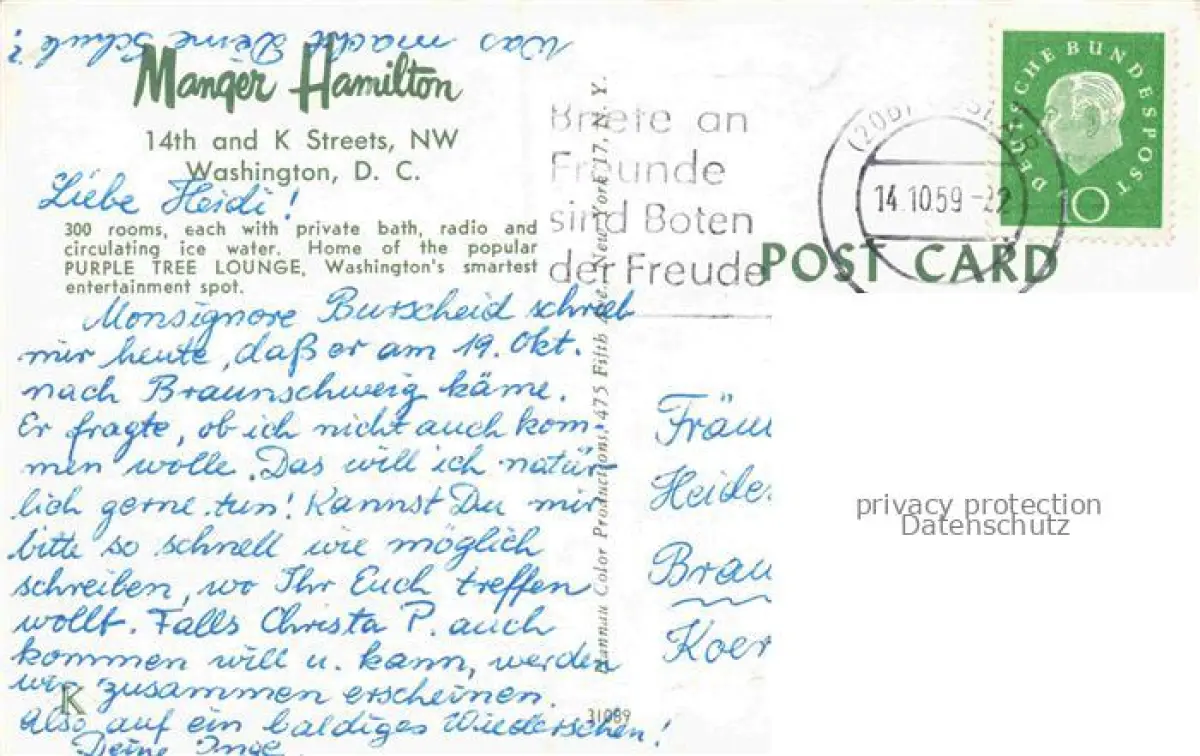 Was macht Deine Schule?
Manger Hamilton
14th and K Streets, NW
Washington, D. C.
Liebe Heidi!
300 rooms, each with private bath, radio and
circulating ice water. Home of the popular
PURPLE TREE LOUNGE, Washington's smartest
entertainment spot.
Monsignore Burscheid schrieb
mir heute, daß er am 19. Okt.
nach Braunschweig käme.
Er fragte, ob ich nicht auch kom-
men wolle. Das will ich natür-
lich gerne tun! Kannst Du mir
bitte so schnell wie möglich
schreiben, wo Ihr Euch treffen
wollt. Falls Christa P. auch
kommen will u. kann, werden
wir zusammen erscheinen.
Also auf ein baldiges Wiedersehen!
Deine Inge
K
Color Productions, 475 Fifth Ave. New York 17, N. Y.
31089
Briefe an
Freunde
sind Boten
der Freude
14.10.59-22
DEUTSCHE BUNDESPOST
10
POST CARD
Fräu
Heide
Brau
Koer
privacy protection
Datenschutz